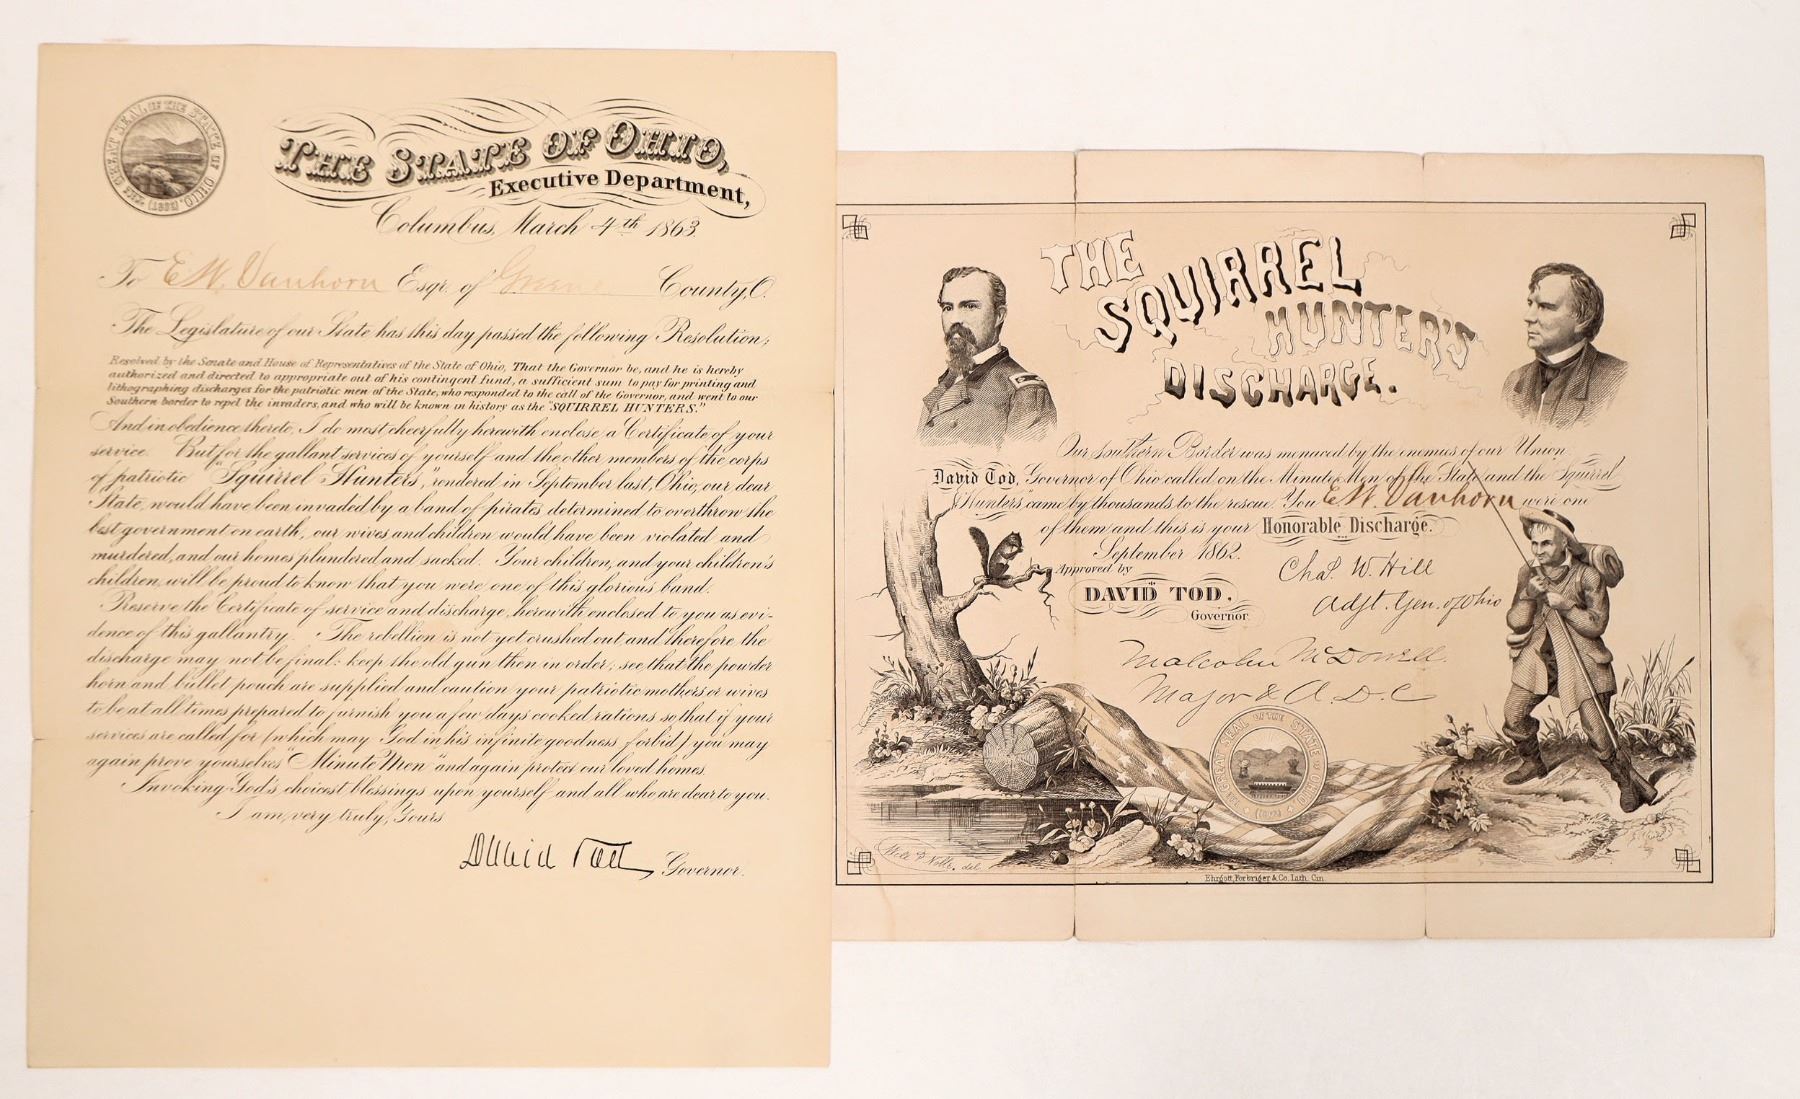 THE GREAT SEAL OF THE STATE OF OHIO. (1802)
THE STATE OF OHIO,
Executive Department,
Columbus, March 4th 1863.
To E. W. Vanhorn Esqr. of Greene County, O.
The Legislature of our State has this day passed the following Resolution;
Resolved by the Senate and House of Representatives of the State of Ohio, That the Governor be, and he is hereby
authorized and directed to appropriate out of his contingent fund, a sufficient sum to pay for printing and
lithographing discharges for the patriotic men of the State, who responded to the call of the Governor, and went to our
Southern border to repel the invaders, and who will be known in history as the "SQUIRREL HUNTERS."
And in obedience thereto, I do most cheerfully herewith enclose a Certificate of your
service. But for the gallant services of yourself and the other members of the corps
of patriotic "Squirrel Hunters", rendered in September last, Ohio, our dear
State, would have been invaded by a band of pirates determined to overthrow the
best government on earth, our wives and children would have been violated and
murdered, and our homes plundered and sacked. Your children, and your children's
children, will be proud to know that you were one of this glorious band.
Reserve the Certificate of service and discharge, herewith enclosed to you as evi-
dence of this gallantry. The rebellion is not yet crushed out, and therefore the
discharge may not be final: keep the old gun then in order; see that the powder
horn and bullet pouch are supplied and caution your patriotic mothers or wives
to be at all times prepared to furnish you a few days cooked rations so that if your
services are called for (which may God in his infinite goodness forbid) you may
again prove yourselves "Minute Men" and again protect our loved homes.
Invoking God's choicest blessings upon yourself and all who are dear to you.
I am, very truly, Yours
David Tod, Governor.
THE
SQUIRREL
HUNTER'S
DISCHARGE.
Our southern Border was menaced by the enemies of our Union.
David Tod, Governor of Ohio called on the Minute Men of the State and the "Squirrel
Hunters" came by thousands to the rescue. You E. W. Vanhorn were one
of them and this is your Honorable Discharge.
September 1862.
Approved by
DAVID TOD,
Governor
Chas. W. Hill
Adjt. Gen. of Ohio
Malcolm McDowell
Major & A. D. C
GREAT SEAL OF THE STATE OF OHIO (1802)
Noble, del.
Ehrgott, Forbriger & Co. Lith. Cin.